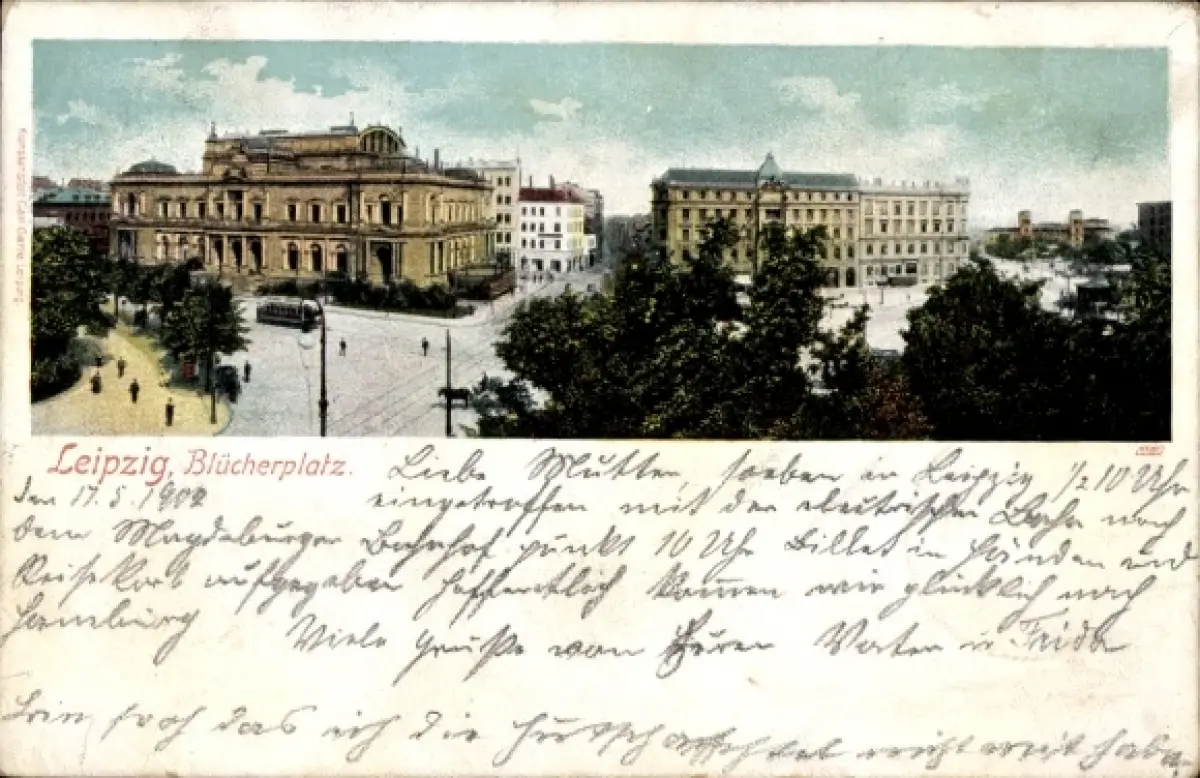 Kunstanstalt Carl Garte Leipzig
Leipzig, Blücherplatz.
Liebe Mutter, soeben in Leipzig 1/2 10 Uhr
den 17.5.1902 eingetroffen mit der elektrischen Bahn nach
dem Magdeburger Bahnhof punkt 10 Uhr Billet in Händen und
Reisekorb aufgegeben hoffentlich kommen wir glücklich nach
Hamburg Viele Grüße von Vater u Frida
bin froh das ich die nicht mit habe